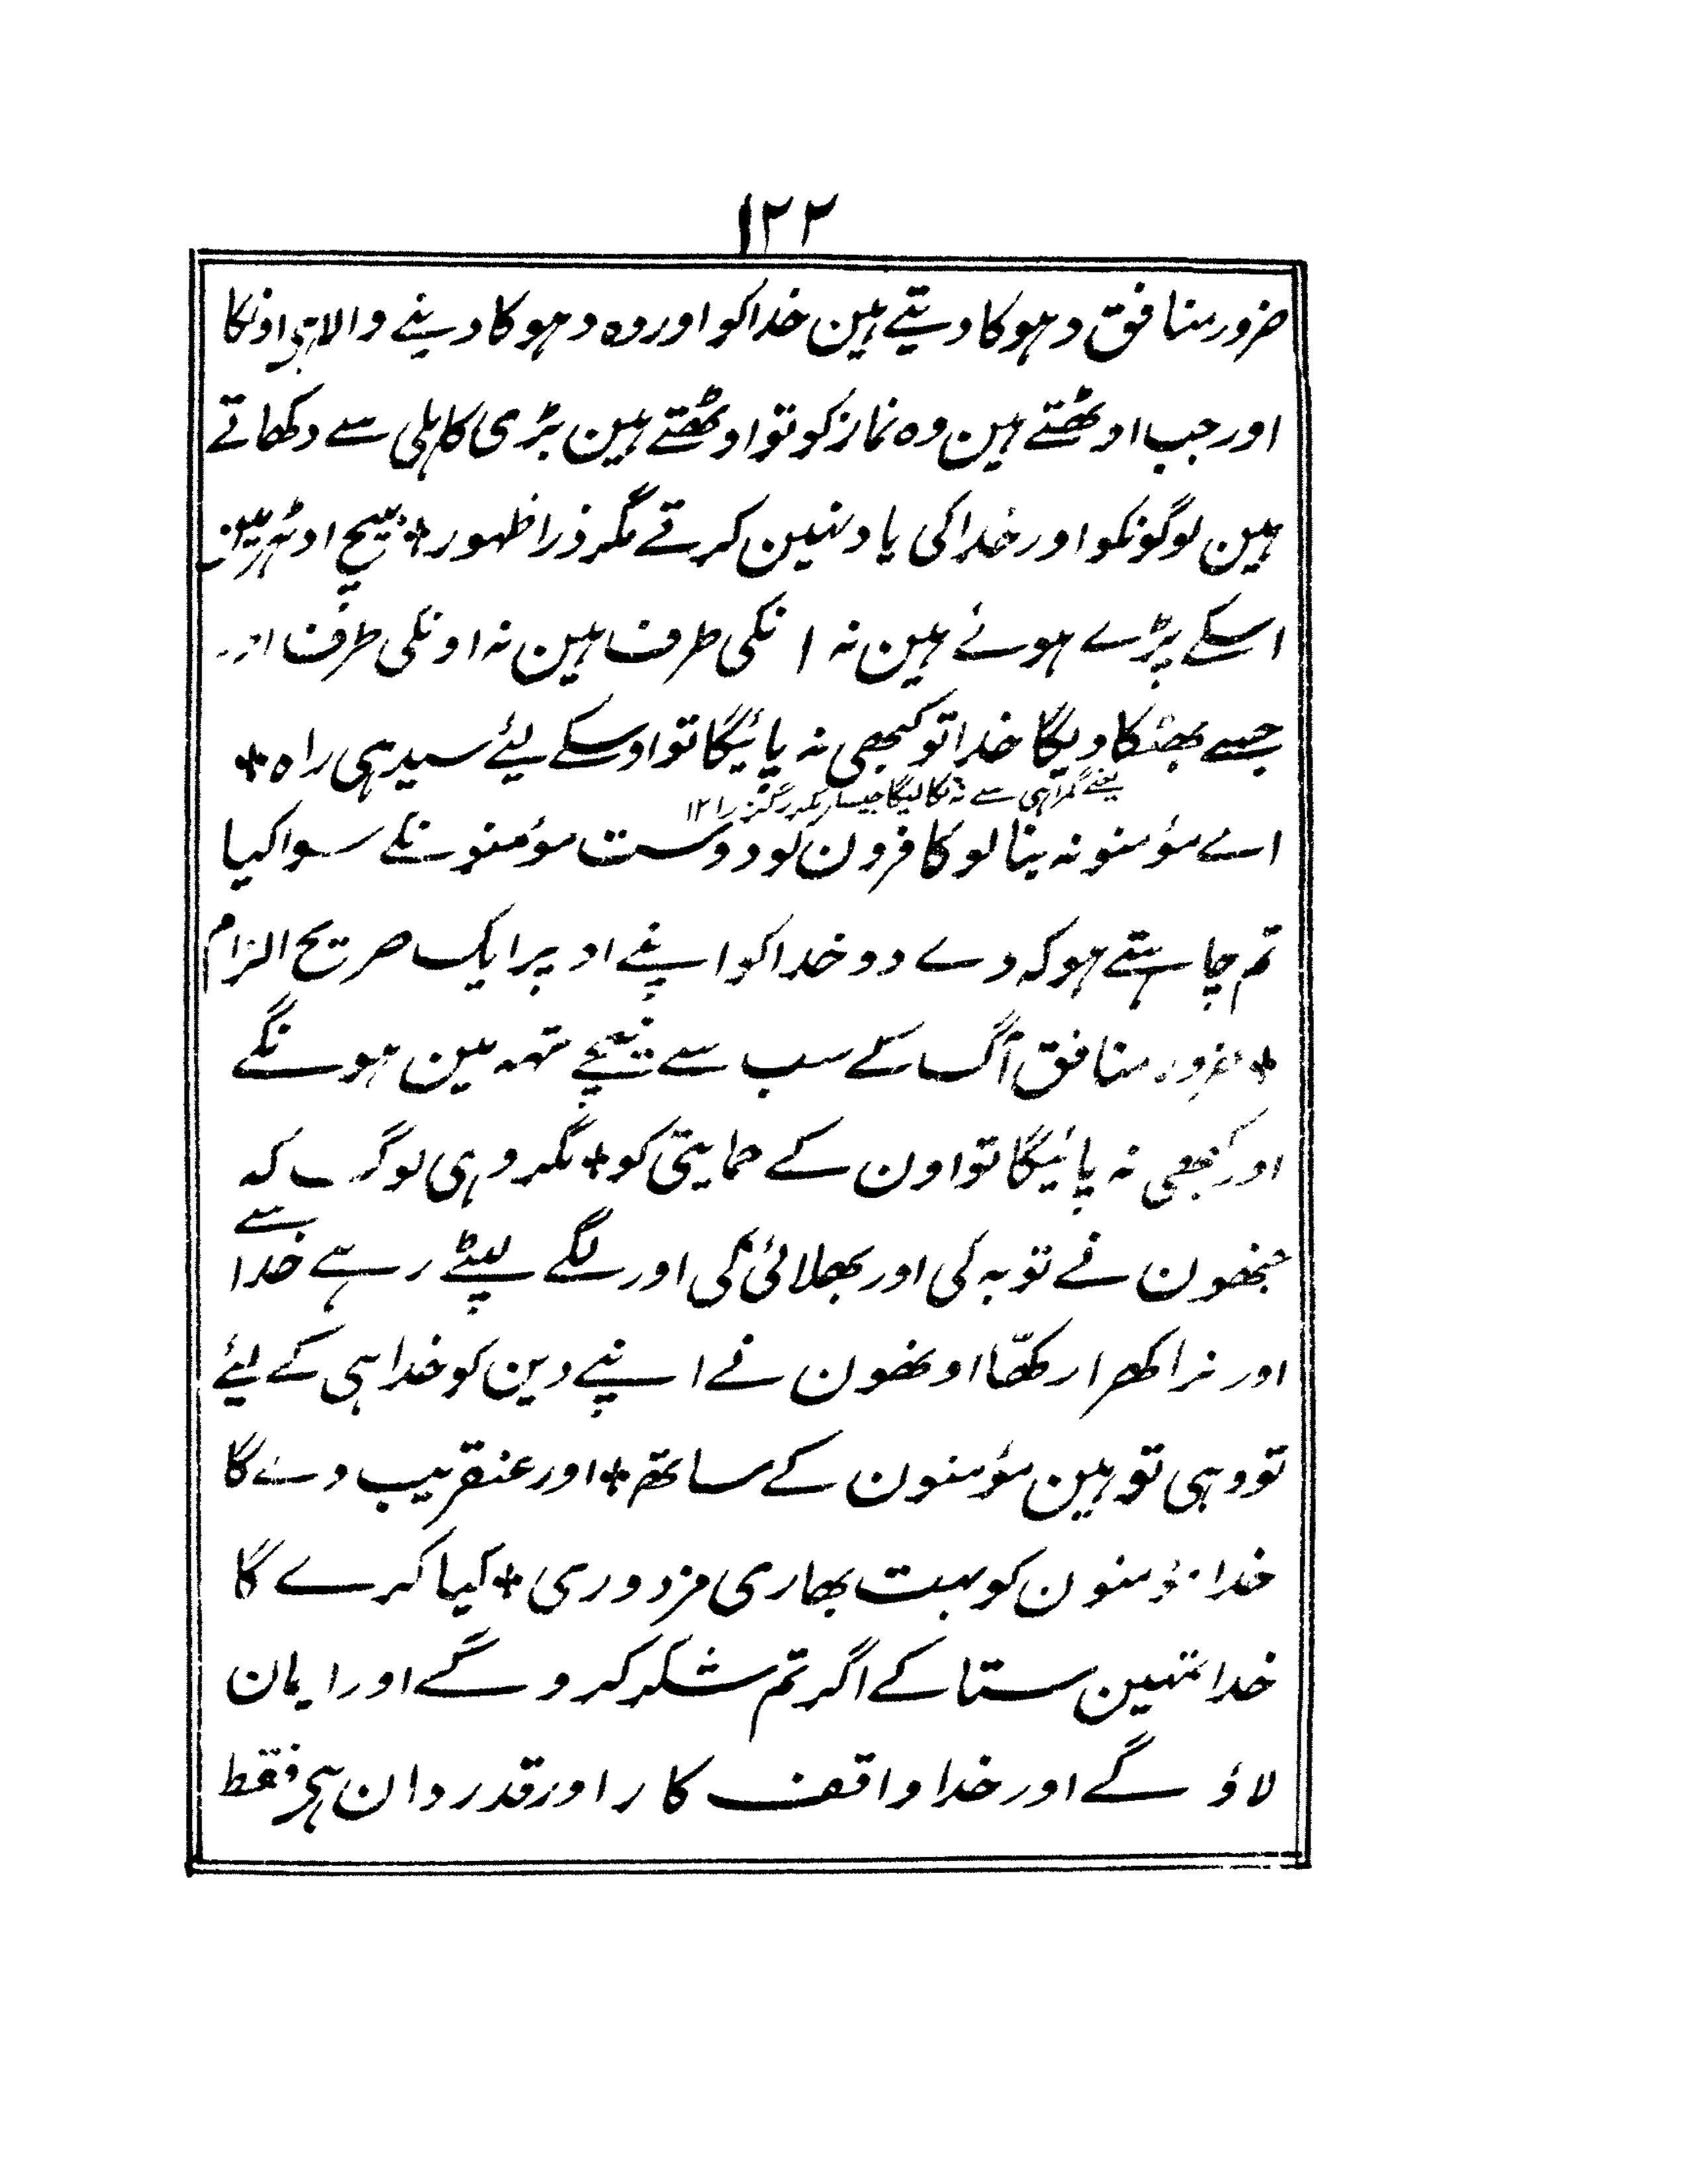 ۱۲۲
ضرور منافق دہوکا دیتے ہین خدا کو اور وہ دہوکا دینے والا ہی اونکا
اور جب اوٹھتے ہین وہ نماز کو تو اوٹھتے ہین بڑی کاہلی سے دکھاتے
ہین لوگونکو اور خدا کی یاد نہین کرتے مگر ذرا ظہور + بیچ ادہڑ مین
اسکے پڑے ہوئے ہین نہ انکی طرف ہین نہ اونکی طرف اور
جسے بھٹکا دیگا خدا تو کبھی نہ پائیگا تو اوسکے لیئے سیدہی راہ +
یعنے گمراہی سے نہ نکالیگا جیسا
اے مؤمنو نہ بنا لو کافرون کو دوست مؤمنونکے سوا کیا
تم چاہتے ہو کہ دے دو خدا کو اپنے اوپر ایک صریح الزام
+ ضرور منافق آگ کے سب سے نیچے تہہ مین ہونگے
اور کبھی نہ پائیگا تو اون کے حمایتی کو + مگر وہی لوگ کہ
جنھون نے توبہ کی اور بھلائی کی اور لگے لپٹے رہے خدا سے
اور نرا کھرا رکھّا اونھون نے اپنے دین کو خدا ہی کے لیئے
تو وہی تو ہین مؤمنون کے ساتھ + اور عنقریب دے گا
خدا مؤمنون کو بہت بھاری مزدوری + کیا کرے گا
خدا تمہین ستا کے اگر تم شکر کرو گے اور ایمان
لاؤ گے اور خدا واقف کار اور قدردان ہی فقط